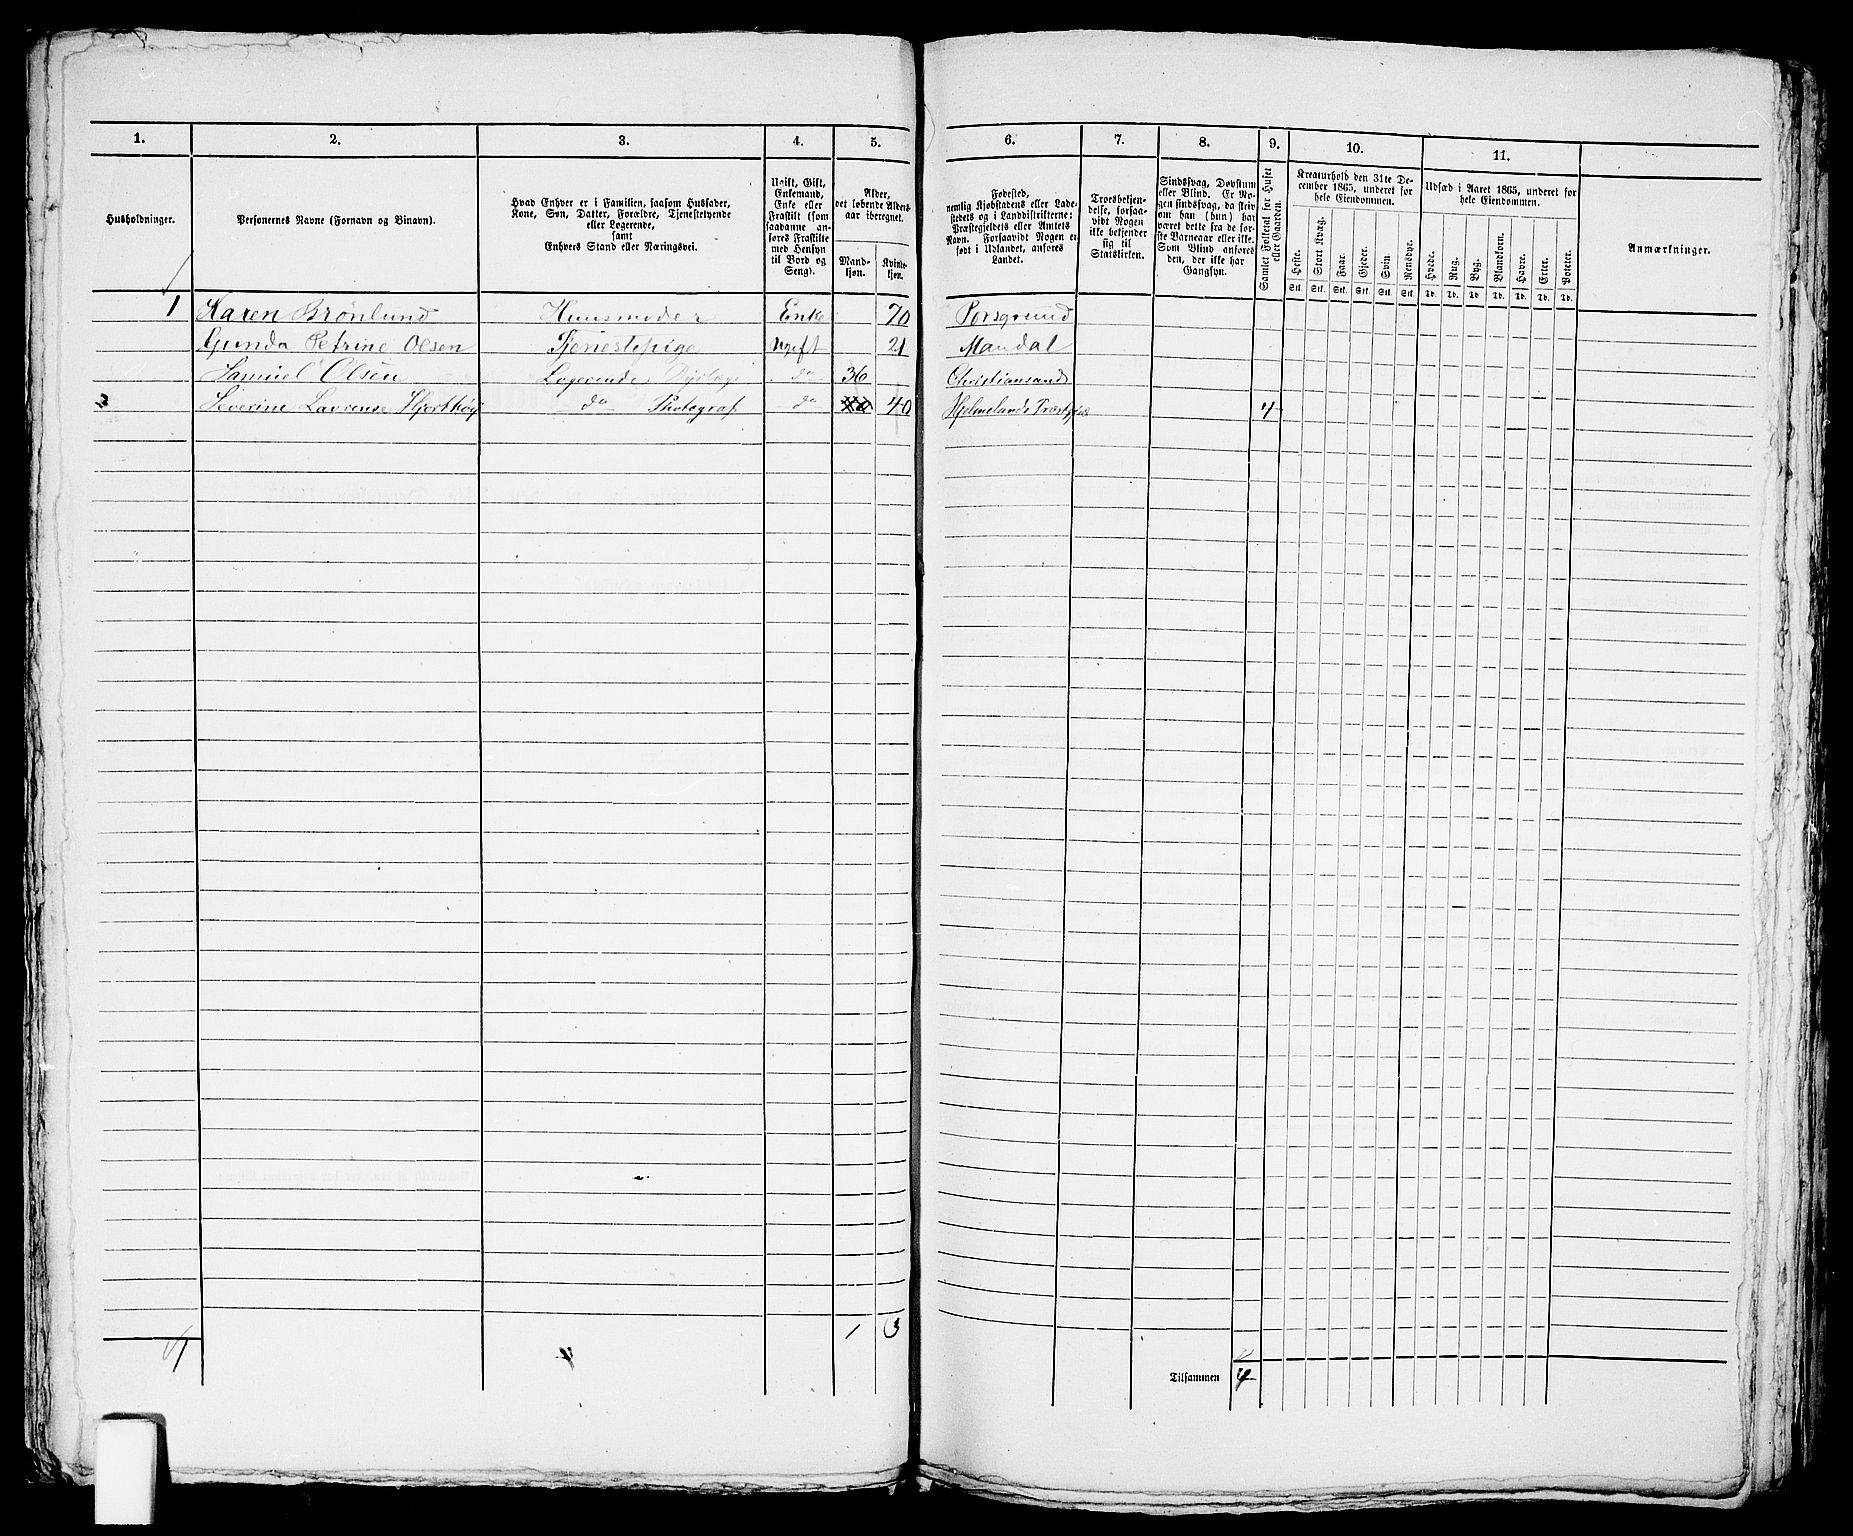 1. 2. 3. 4. 5. 6. 7. 8. 9. 10. 11.
Husholdninger.
Personernes Navne (Fornavn og Binavn).
Hvad Enhver er i Familien, saasom Husfader,
Kone, Søn, Datter, Forældre, Tjenestetyende
eller Logerende,
samt
Enhvers Stand eller Næringsvei.
Ugift, Gift,
Enkemand,
Enke eller
Fraskilt (som
saadanne an-
føres Fraskilte
med Hensyn
til Bord og
Seng).
Alder,
det løbende Alders-
aar iberegnet.
Mand-
kjøn.
Kvinde-
kjøn.
Fødested,
nemlig Kjøbstadens eller Lade-
stedets og i Landdistrikterne:
Præstegjeldets eller Amtets
Navn. Forsaavidt Nogen er
født i Udlandet, anføres
Landet.
Troesbekjen-
delse, forsaa-
vidt Nogen
ikke bekjender
sig til
Statskirken.
Sindssvag, Døvstum
eller Blind. Er No-
gen sindssvag, da skriv
om han (hun) har
været dette fra de før-
ste Barneaar eller ikke.
Som Blind anføres
den, der ikke har
Gangsyn.
Samlet Folketal for Huset
eller Gaarden.
Kreaturhold den 31te De-
cember 1865, underet for
hele Eiendommen.
Heste. Stort Kvæg. Faar. Gjeder. Svin Rensdyr.
Stk. Stk. Stk. Stk. Stk. Stk.
Udsæd i Aaret 1865, underet for
hele Eiendommen.
Hvede. Rug. Byg. Blandkorn. Havre. Erter. Poteter.
Td. Td. Td. Td. Td. Td. Td.
Anmærkninger.
1 Karen Brönlund Huusmoder Enke 70 Porsgrund
Gunda Petrine Olsen Tjenestepige Ugift 21 Mandal
Samuel Olsen Logerende do 36 Christiansand
2 Severine Lavrense Hjorthöy do Photograf do 40 40 Hjelmelands Præstgjæ 4
1 3
Tilsammen 4